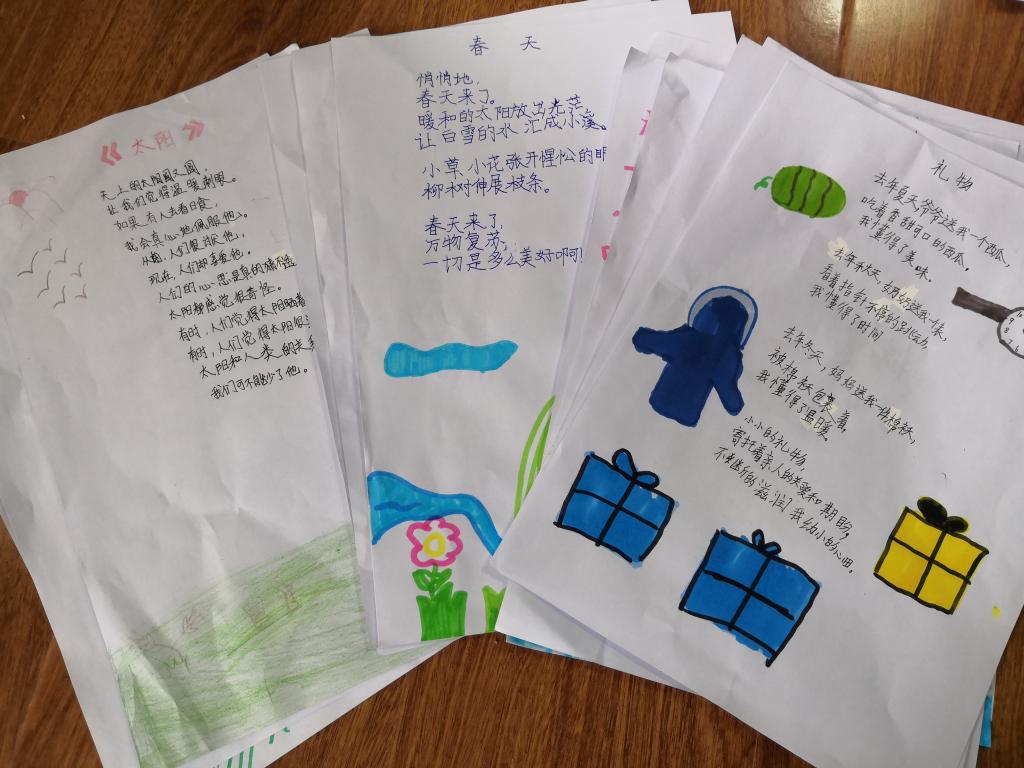 《太阳》
天上的太阳圆又圆，
让我们觉得温暖刺眼。
如果有人去看日食，
我会真心地佩服他。
从前，人们很讨厌他，
现在，人们却喜爱他，
人们的心思是真的
太阳都感觉很奇怪。
有时，人们觉得太阳
有时，人们觉得太阳很
太阳和人类的关系
我们可不能少了他。
春 天
悄悄地，
春天来了。
暖和的太阳放出光芒
让白雪的水汇成小溪。
小草、小花张开惺忪的
柳树伸展枝条。
春天来了，
万物复苏，
一切是多么美好啊！
礼物
去年夏天爷爷送我一个西瓜，
吃着香甜可口的西瓜，
我懂得了美味。
去年秋天，奶奶送我一表，
看着指针不停的
我懂得了时间
去年冬天，妈妈送我一件棉袄，
被棉袄包裹着，
我懂得了温暖。
小小的礼物，
寄托着亲人的关爱和期盼，
不断的滋润我幼小的心田。